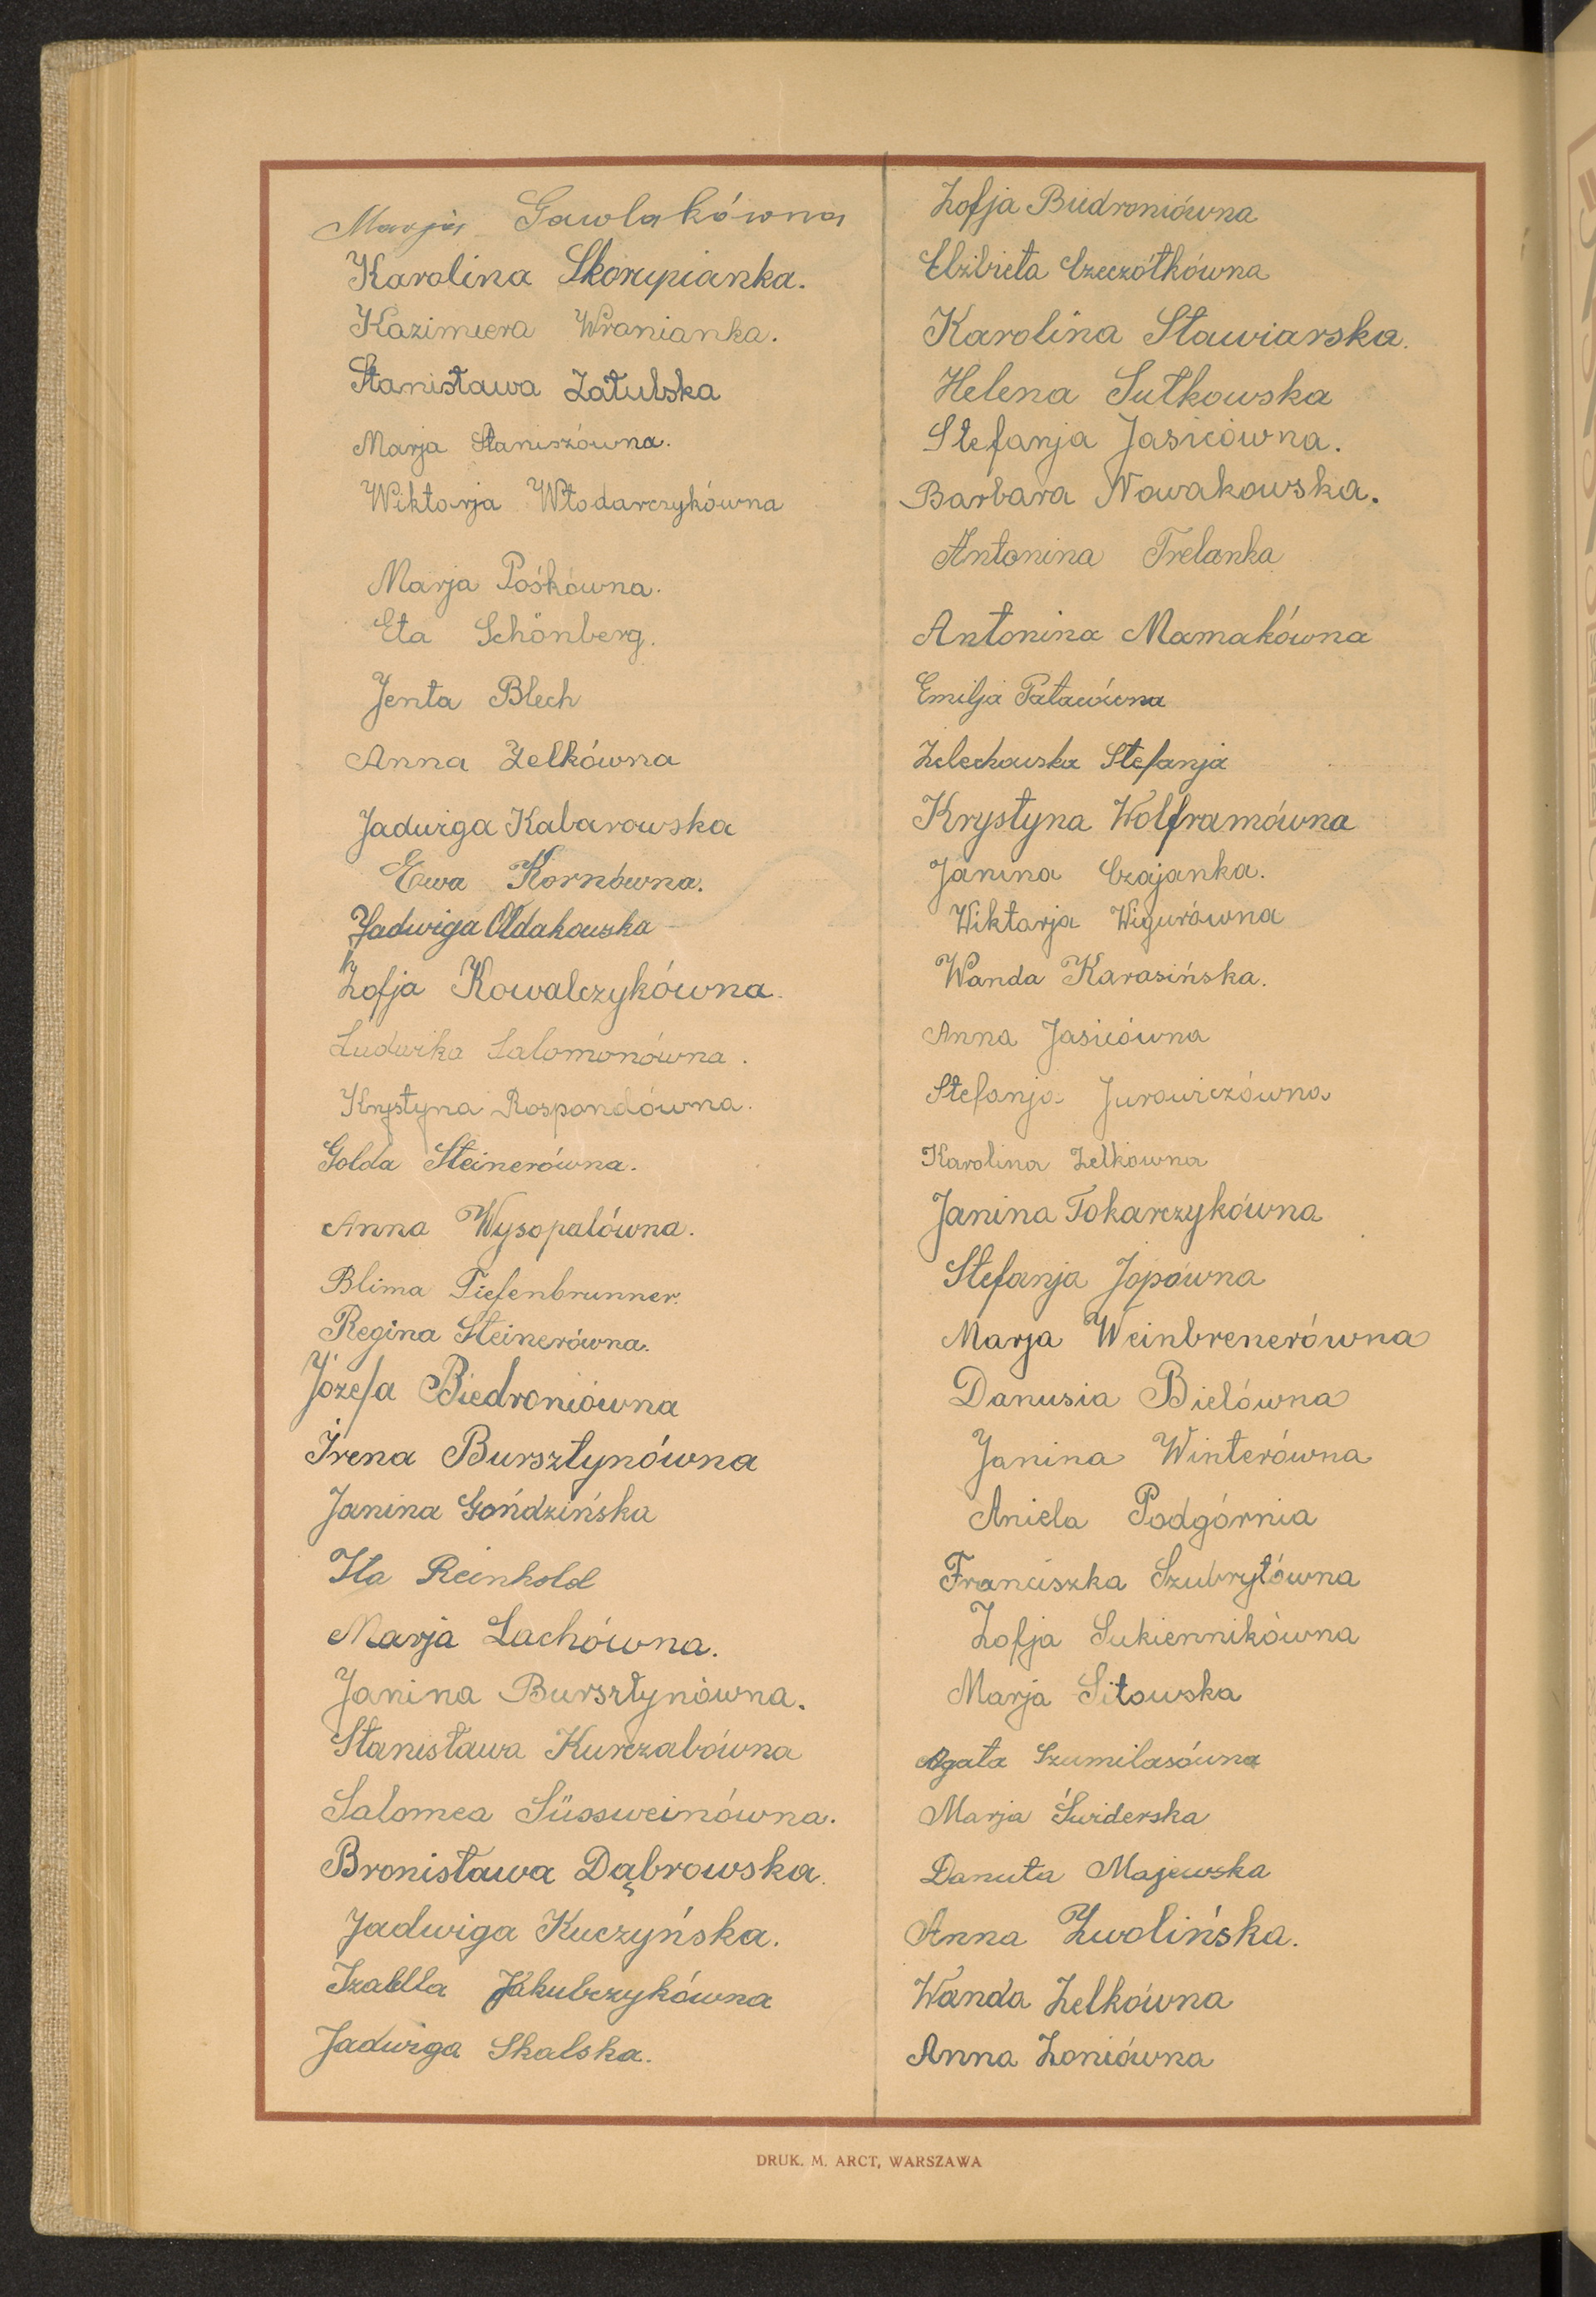 Marja Gawlakówna
Karolina Skorupianka.
Kazimiera Wranianka.
Stanisława Zatulska
Marja Staniszówna.
Wiktorja Włodarczykówna
Marja Pośkówna.
Eta Schönberg.
Jenta Blech
Anna Zelkówna
Jadwiga Kabarowska
Ewa Kornówna.
Jadwiga Ołdakowska
Zofja Kowalczykówna.
Ludwika Salomonówna.
Krystyna Rospondówna.
Golda Steinerówna.
Anna Wysopalówna.
Blima Tiefenbrunner.
Regina Steinerówna.
Józefa Biedroniówna
Irena Bursztynówna
Janina Gońdzińska
Ita Reinhold
Marja Lachówna.
Janina Bursztynówna.
Stanisława Kurczabówna
Salomea Süssweinówna.
Bronisława Dąbrowska.
Jadwiga Kuczyńska.
Izabella Jakubczykówna
Jadwiga Skalska.
Zofja Biedroniówna
Elżbieta Czeczótkówna
Karolina Stawiarska.
Helena Sutkowska
Stefanja Jasicówna.
Barbara Nowakowska.
Antonina Trelanka
Antonina Mamakówna
Emilja Pataẃówna
Żelechowska Stefanja
Krystyna Wolframówna
Janina Czajanka.
Wiktarja Wigurówna
Wanda Karasińska.
Anna Jasicówna
Stefanja Jurowiczówna
Karolina Zelkówna
Janina Tokarczykówna
Stefanja Jopówna
Marja Weinbrenerówna
Danusia Bielówna
Janina Winterówna
Aniela Podgórnia
Franciszka Szubrytówna
Zofja Sukiennikówna
Marja Sitowska
Agata Szumilasówna
Marja Świderska
Danuta Majewska
Anna Zwolińska.
Wanda Zelkówna
Anna Zoniówna
DRUK. M. ARCT, WARSZAWA